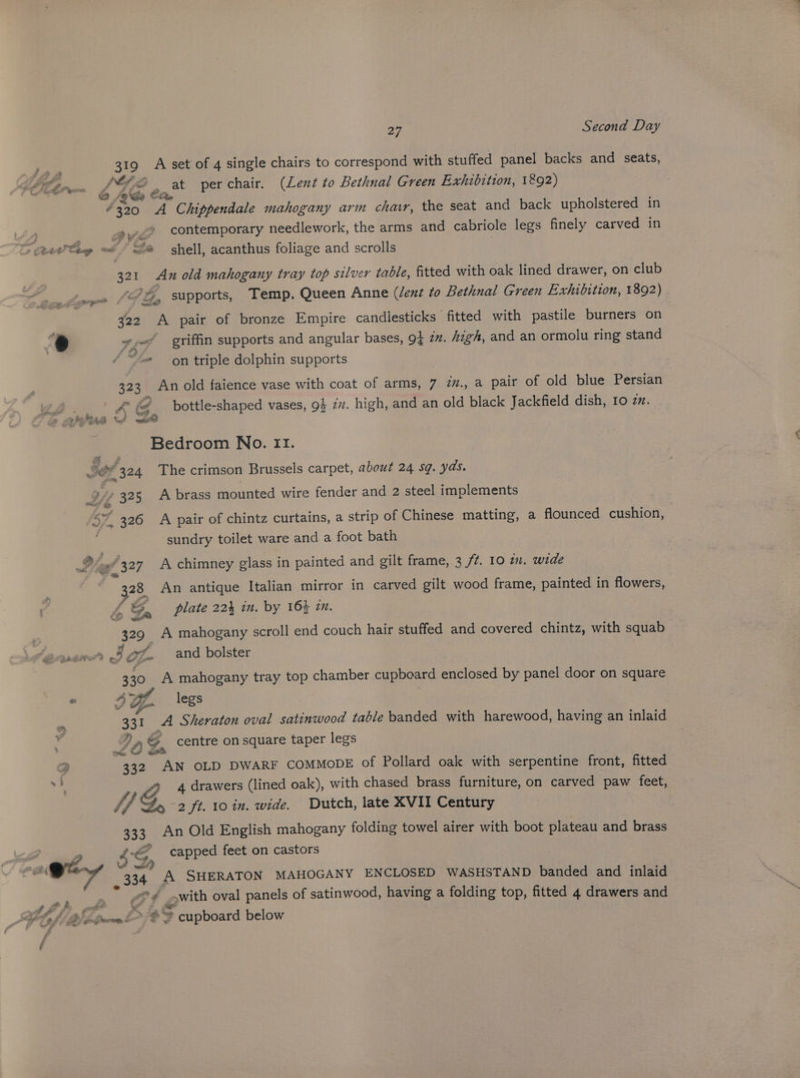 27 Second Day
319 A set of 4 single chairs to correspond with stuffed panel backs and seats,
at per chair. (Lent to Bethnal Green Exhibition, 1892)
320 A Chippendale mahogany arm chair, the seat and back upholstered in
contemporary needlework, the arms and cabriole legs finely carved in
shell, acanthus foliage and scrolls
321 An old mahogany tray top silver table, fitted with oak lined drawer, on club
supports, Temp. Queen Anne (lent to Bethnal Green Exhibition, 1892)
322 A pair of bronze Empire candlesticks fitted with pastile burners on
griffin supports and angular bases, 9½ in. high, and an ormolu ring stand
on triple dolphin supports
323 An old faience vase with coat of arms, 7 in., a pair of old blue Persian
bottle-shaped vases, 9½ in. high, and an old black Jackfield dish, 10 in.
Bedroom No. 11.
324 The crimson Brussels carpet, about 24 sq. yds.
325 A brass mounted wire fender and 2 steel implements
326 A pair of chintz curtains, a strip of Chinese matting, a flounced cushion,
sundry toilet ware and a foot bath
327 A chimney glass in painted and gilt frame, 3 ft. 10 in. wide
328 An antique Italian mirror in carved gilt wood frame, painted in flowers,
plate 22½ in. by 16½ in.
329 A mahogany scroll end couch hair stuffed and covered chintz, with squab
and bolster
330 A mahogany tray top chamber cupboard enclosed by panel door on square
legs
331 A Sheraton oval satinwood table banded with harewood, having an inlaid
centre on square taper legs
332 AN OLD DWARF COMMODE of Pollard oak with serpentine front, fitted
4 drawers (lined oak), with chased brass furniture, on carved paw feet,
2 ft. 10 in. wide. Dutch, late XVII Century
333 An Old English mahogany folding towel airer with boot plateau and brass
capped feet on castors
334 A SHERATON MAHOGANY ENCLOSED WASHSTAND banded and inlaid
with oval panels of satinwood, having a folding top, fitted 4 drawers and
cupboard below